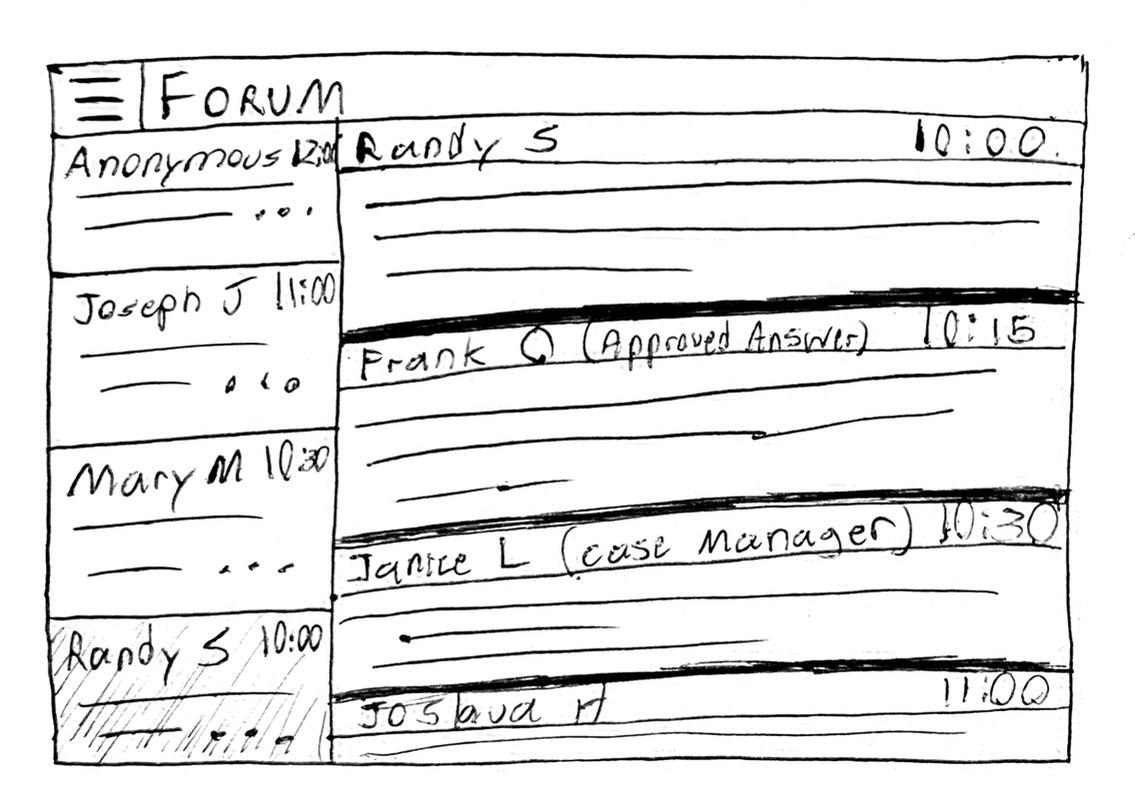 FORUM
Anonymous 12:00
Joseph J 11:00
Mary M 10:30
Randy S 10:00
Randy S 10:00
Frank Q (Approved Answer) 10:15
Janice L (case Manager) 10:30
H 11:00